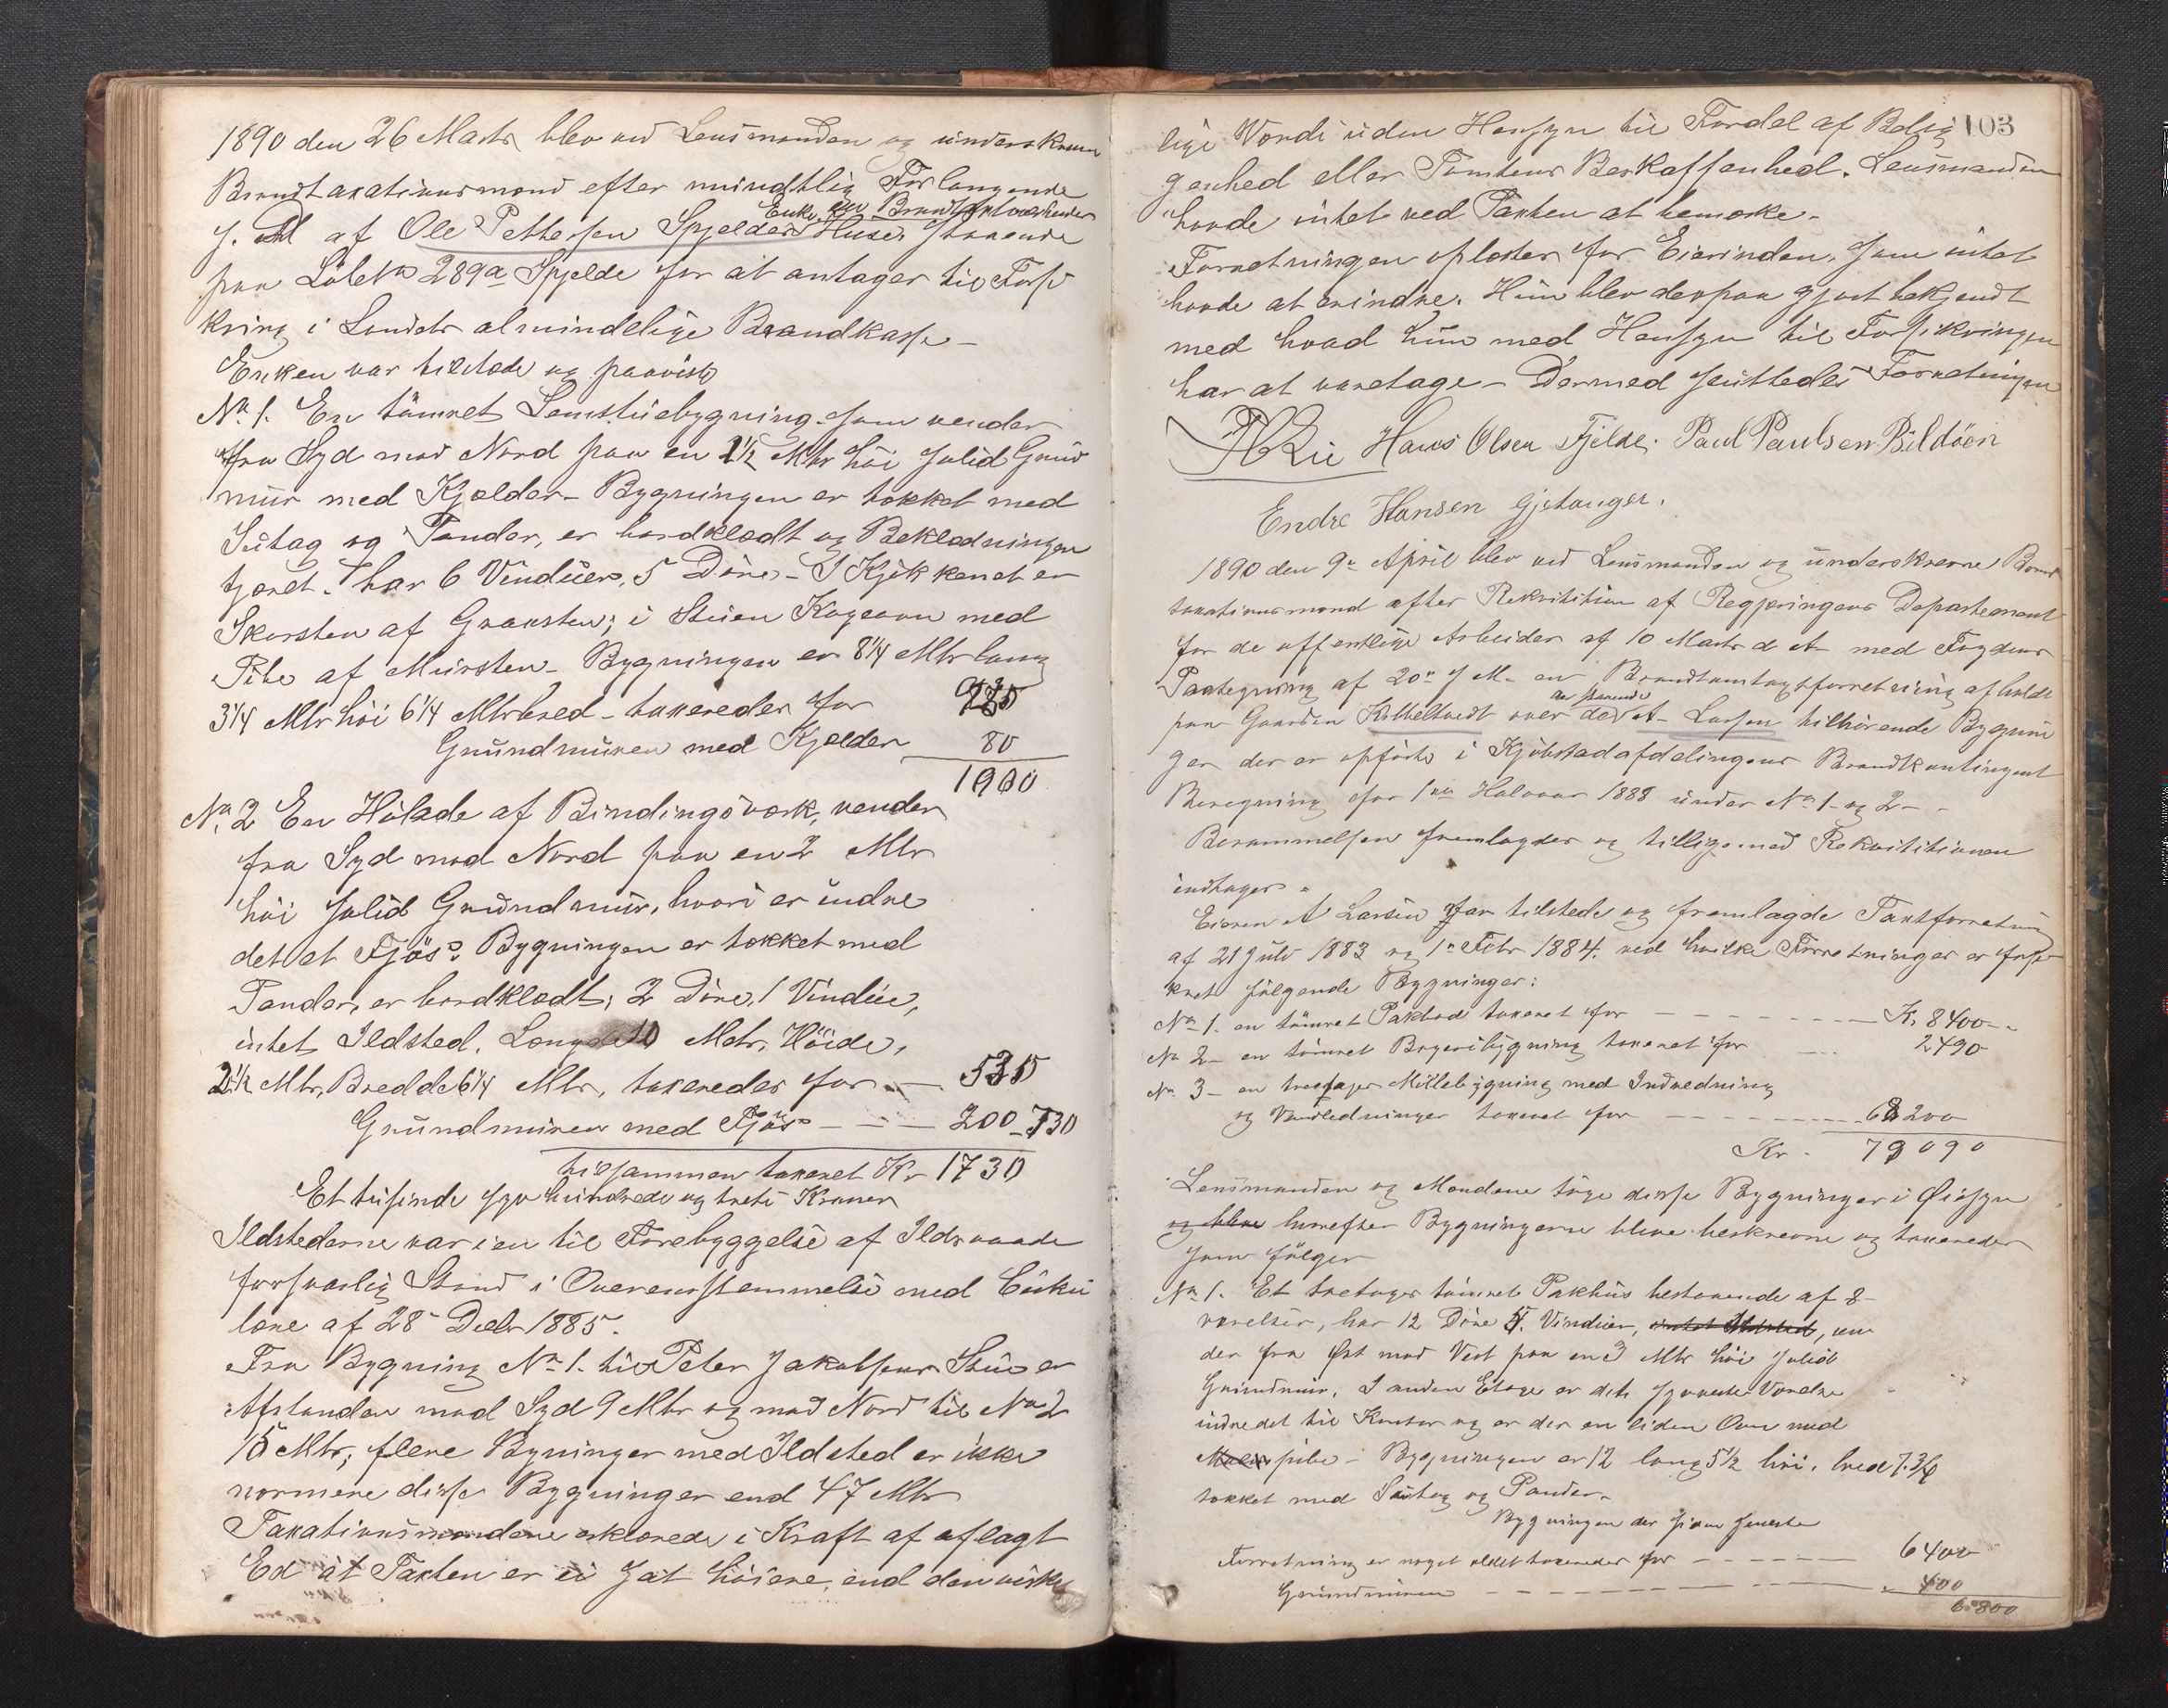 1890 den 26 Marts blev ved Lensmanden og underskrevne
Brandtaxationsmænd efter mundtlig Forlangende
Enke en Brandtaxtforretning
af Ole Pettersen Spjelds Huse staaende
paa Löbe No 289a Spjelde for at antages til Forsi
kring i Landets almindelige Brandkasse –
Enken var tilstede og paaviste
No 1. En tömret Lemstuebygning som vender
fra Syd mod Nord paa en 1½ Mtr höi solid Grund
mur med Kjælder – Bygningen er tækket med
Sutag og Pander, er bordklædt og Beklædningen
tjæret. har 6 Vinduer, 5 Döre – I Kjøkkenet er
Skorsten af Graasten; i Stuen Kogeovn med
Pibe af Mursten – Bygningen er 8¼ Mtr lang
3¼ Mtr höi 6¼ Mtr bred – taxeredes for
Grundmuren med Kjælder 80
No 2 En Hölade af Bindingsværk, vender
fra Syd mod Nord paa en 2 Mtr
höi solid Grundmur, hvori er indre
det et Fjös. Bygningen er tækket med
Pander, er bordklædt; 2 Döre, 1 Vindue,
intet Ildsted. Længde 10 Mtr, Höide,
2½ Mtr, Bredde 6¼ Mtr, taxeredes for – 530
Grundmuren med Fjös – – – 200 – 730
tilsammen taxeret Kr 1730
Et tusinde syv hundrede og treti Kroner
Ildstederne var i en til Forebyggelse af Ildsvaade
forsvarlig Stand i Overensstemmelse med Cirku
lære af 28 Decbr 1885.
Fra Bygning No 1. til Peter Jakobsens Stue er
Afstanden mod Syd 9 Mtr og mod Nord til No 2
15 Mtr; flere Bygninger med Ildsted er ikke
nærmere disse Bygninger end 47 Mtr
Taxationsmændene erklærede i Kraft af aflagt
Ed at Taxten er ei sat höiere end den virke
103
lige Værdi uden Hensyn til Fordel af Belig
genhed eller Tomtens Beskaffenhed. Lensmanden
havde intet ved Taxten at bemærke –
Forretningen oplæstes for Eierinden, som intet
havde at erindre. Hun blev derpaa gjort bekjendt
med hvad hun med Hensyn til Forsikringen
har at varetage – Dermed sluttedes Forretningen
Hans Olsen Fjelde. Paul Paulsen Bildöen
Endre Hansen Gjetanger.
1890 den 9de April blev ved Lensmanden og underskrevne Brand
taxationsmænd efter Rekvisition af Regjeringens Departement
for de offentlige Arbeider af 10 Marts d A med Fogdens
Paategning af 20de s M. en Brandtaxtforretning afholdt
paa Gaarden Kobbeltvedt over de A. Larsen tilhörende Bygnin
ger der er opförte i Kjöbstadafdelingens Brandkontingent
Beregning for 1ste Halvaar 1888 under No 1 og 2 –
Berammelsen fremlagdes og tilligemed Rekvisitionen
indtages –
Eieren A Larsen var tilstede og fremlagde Taxtforretning
af 21 Juli 1883 og 1ste Febr 1884. ved hvilke Forretninger er forsi
kret fölgende Bygninger:
No 1. en tömret Pakbod taxeret for – – – – Kr 8400 –
No 2 – en tömret Bryeribygning taxeret for 2490
No 3 – en treetages Möllebygning med Indredning
og Vandledninger taxeret for – – – – 68200
Kr. 79090
Lensmanden og Mændene toge disse Bygninger i Öiesyn
og bleve hvorefter Bygningerne bleve beskrevne og taxeredes
som fölger
No 1. Et toetages tömret Pakhus bestaaende af 8 –
værelser, har 12 Döre 5. Vinduer, intet Ildsted, ven
der fra Öst mod Vest paa en 3 Mtr höi solid
Grundmur. I anden Etage er det Værelse
indredet til Kontor og er der en liden Ovn med
pibe – Bygningen er 12 lang 5½ höi, bred 7.3/4
tækket med Sutag og Pander –
Bygningen der siden seneste
Forretning er noget ældet taxeredes for – – – – 6400
Grundmuren – – – – 400
6800